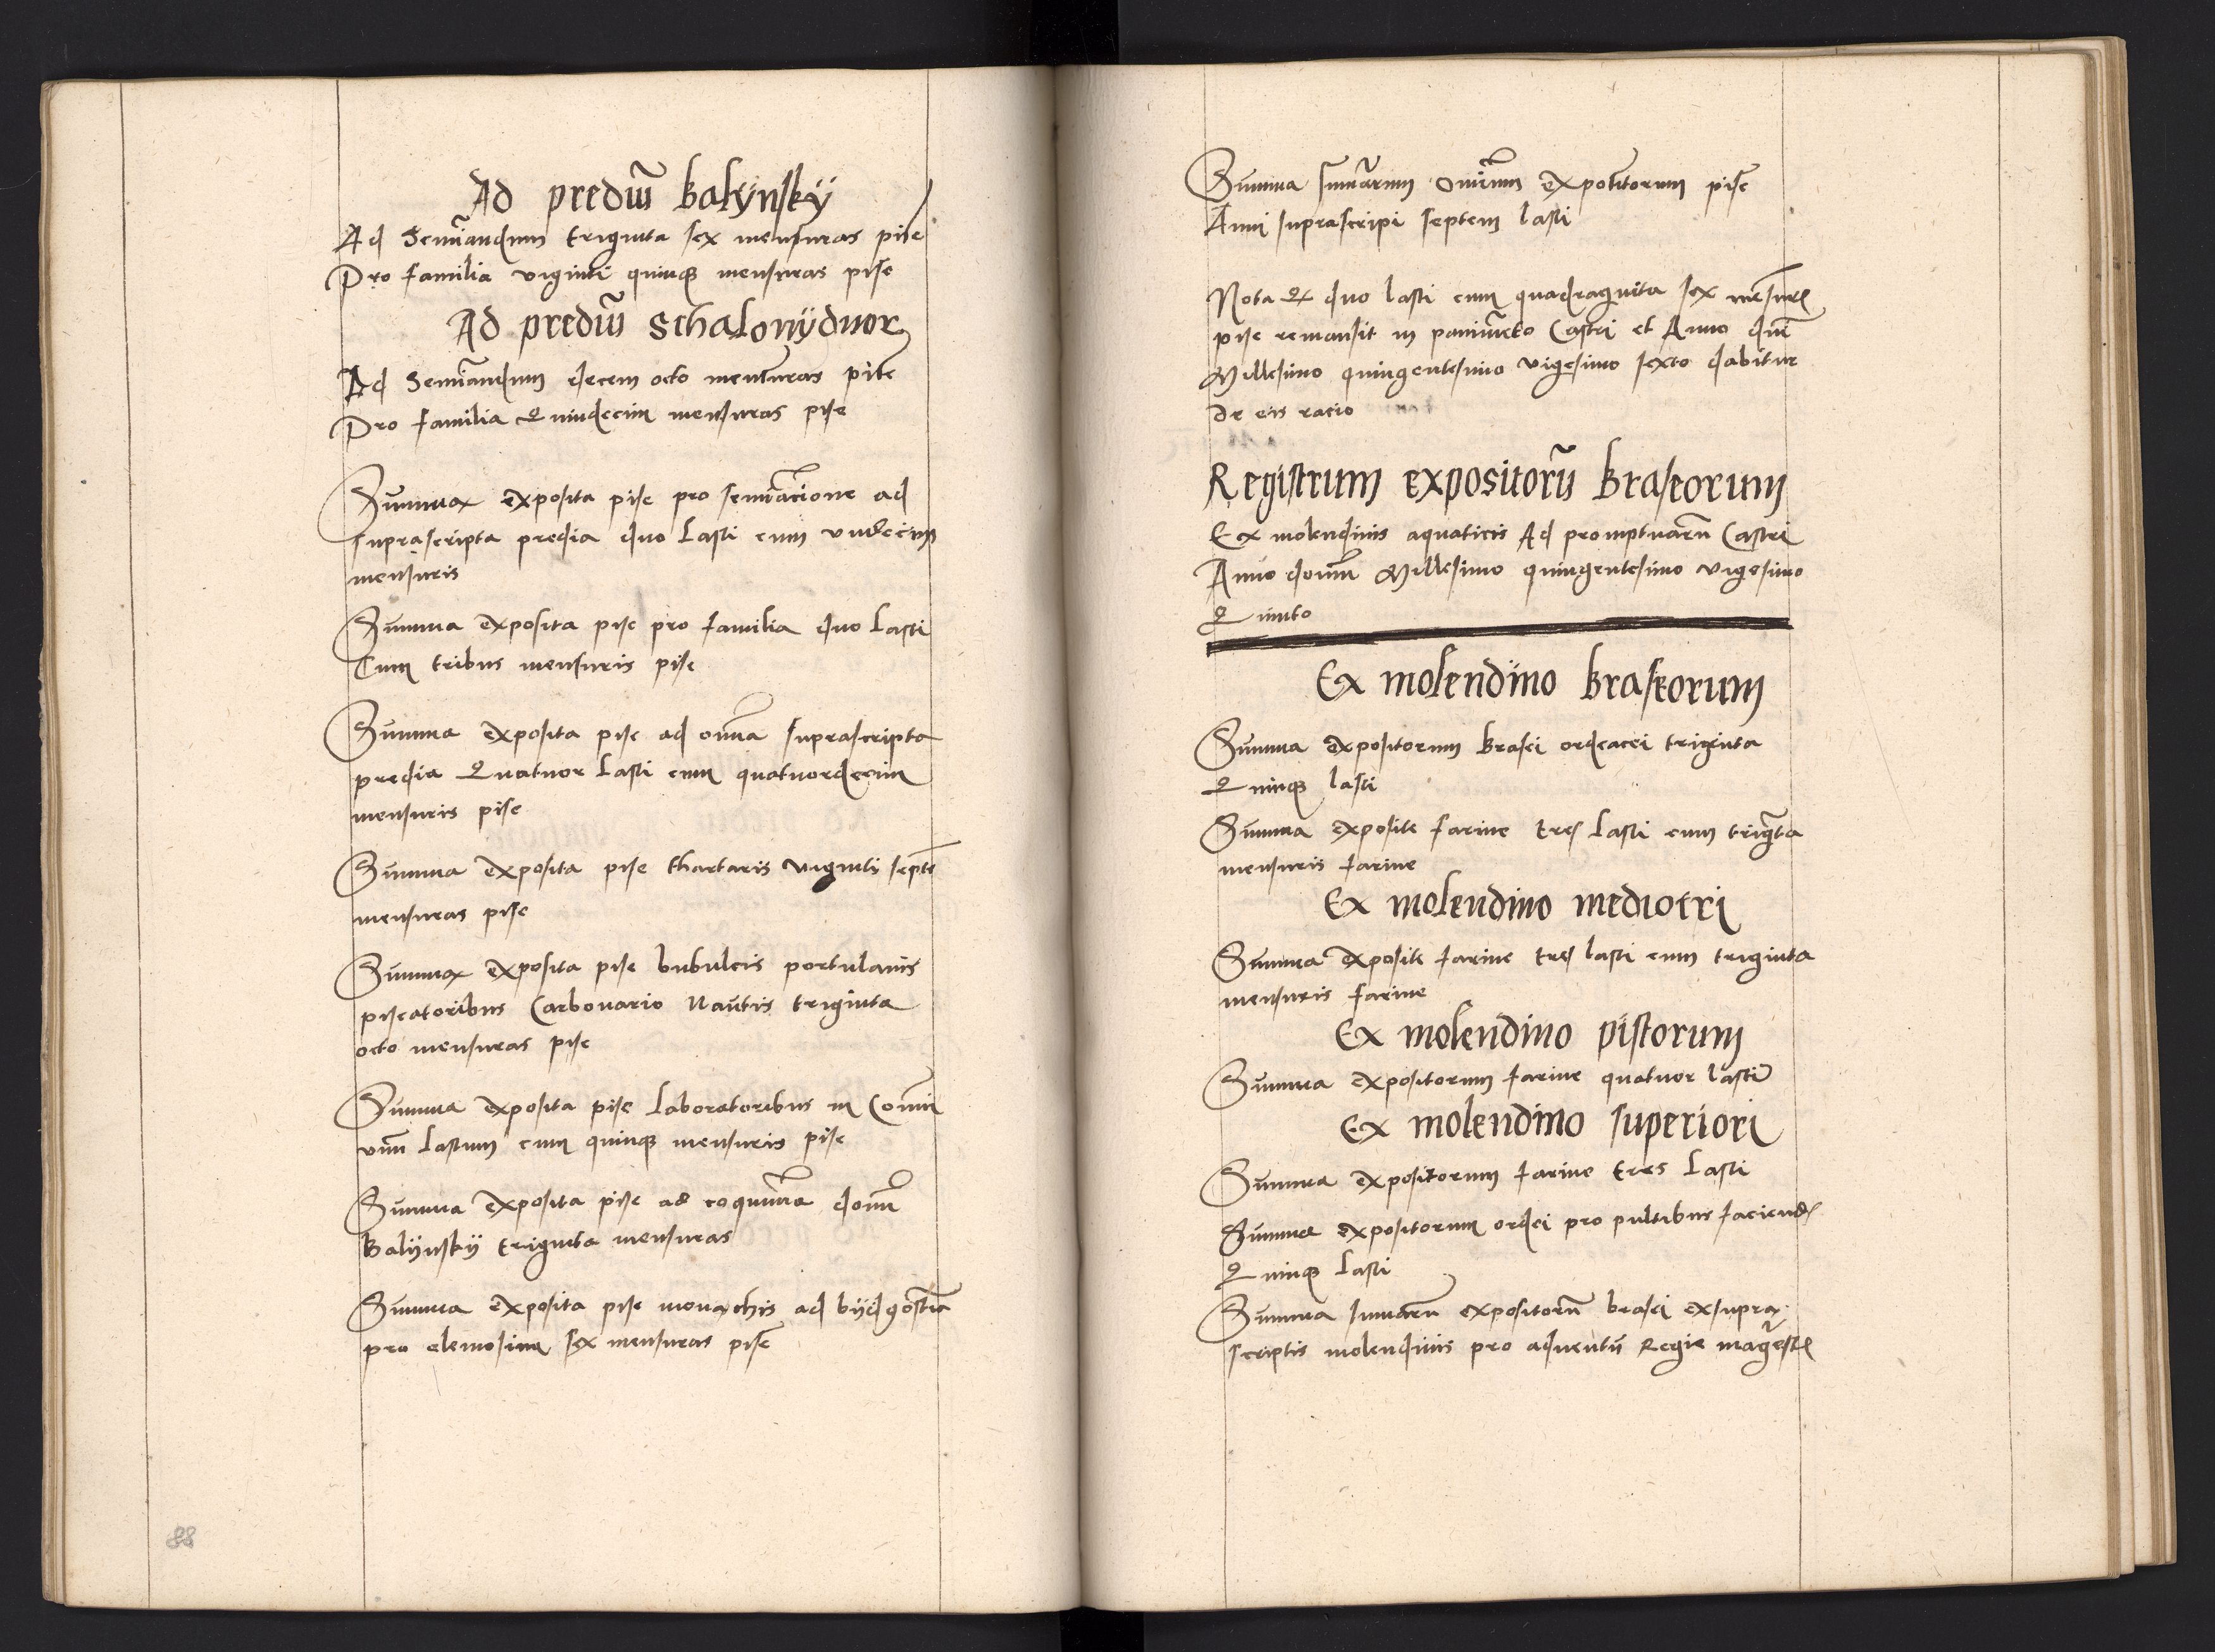 Ad prediũ Balÿnskÿ
Ad Semĩandum triginta sex mensuras pise
Pro familia viginti quinqȝ mensuras pise
Ad prediũ Schalonÿduor
Ad Semĩandum decem octo mensuras pise
Pro familia Quindecim mensuras pise
Summa exposita pise pro semiãcione ad
suprascripta predia duo Lasti cum vndecim
mensuris
Summa exposita pise pro familia duo Lasti
Cum tribus mensuris pise
Summa exposita pise ad oĩa suprascripta
predia Quatuor Lasti cum quatuordecim
mensuris pise
Summa exposita pise thartaris viginti septẽ
mensuras pise
Summa exposita pise bubulcis portulanis
piscatoribus Carbonario Nautis triginta
octo mensuras pise
Summa exposita pise Laboratoribus in
vnũ Lastum cum quinqȝ mensuris pise
Summa exposita pise ad coquinã domĩ
Balÿnskÿ triginta mensuras
Summa exposita pise monachis ad bÿdgostiã
pro elemosina sex mensuras pise
88
Summa sum̃arum Omnium expositorum pise
Anni suprascripi septem lasti
Nota Qȝ duo lasti cum quadraginta sex mensurẽ
pise remansit in Castri et Anno dnĩ
Millesimo quingentesimo vigesimo sexto dabitur
de eis racio
Registrum expositorũ Braseorum
Ex molendinis aquaticis Ad promptuariũ Castri
Anno domĩ Millesimo quingentesimo vigesimo
Quinto
Ex molendino Braseorum
Summa expositorum Brasei ordeacei triginta
Quinqȝ lasti
Summa exposite farine tres Lasti cum trigĩta
mensuris farine
Ex molendino mediocri
Summa exposite farine tres lasti cum triginta
mensuris farine
Ex molendino pistorum
Summa expositorum farine quatuor lasti
Ex molendino superiori
Summa expositorum farine tres Lasti
Summa expositorum ordei pro pultibus faciendis
Quinqȝ Lasti
Summa sum̃arũ expositorũ brasei exsupra
scriptis molendinis pro aduentũ Regie magestẽ